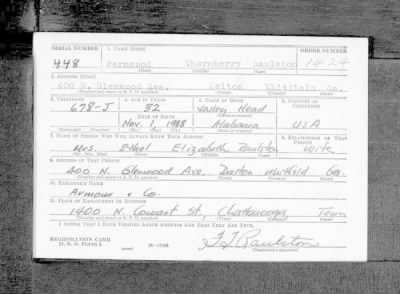 SERIAL NUMBER 1. NAME (Print) ORDER NUMBER
448 Fernwood Thornberry Raulston 1424
(First) (Middle) (Last)
2. ADDRESS (Print)
400 N. Glenwood Ave. Dalton Whitfield Ga.
(Number and street or R. F. D. number) (Town) (County) (State)
3. TELEPHONE 4. AGE IN YEARS 5. PLACE OF BIRTH 6. COUNTRY OF CITIZENSHIP
678-J 32 Valley Head
DATE OF BIRTH (Town or county)
Nov. 1 1908 Alabama USA
(Exchange) (Number) (Mo.) (Day) (Yr.) (State or country)
7. NAME OF PERSON WHO WILL ALWAYS KNOW YOUR ADDRESS 8. RELATIONSHIP OF THAT PERSON
Mrs. Ethel Elizabeth Raulston Wife
(Mr., Mrs., Miss) (First) (Middle) (Last)
9. ADDRESS OF THAT PERSON
400 N. Glenwood Ave. Dalton Whitfield Ga.
(Number and street or R. F. D. number) (Town) (County) (State)
10. EMPLOYER'S NAME
Armour & Co.
11. PLACE OF EMPLOYMENT OR BUSINESS
1400 N. Cowart St., Chattanooga, Tenn
(Number and street or R. F. D. number) (Town) (County) (State)
I AFFIRM THAT I HAVE VERIFIED ABOVE ANSWERS AND THAT THEY ARE TRUE.
REGISTRATION CARD
D. S. S. Form 1 F T Raulston
(Registrant's signature)